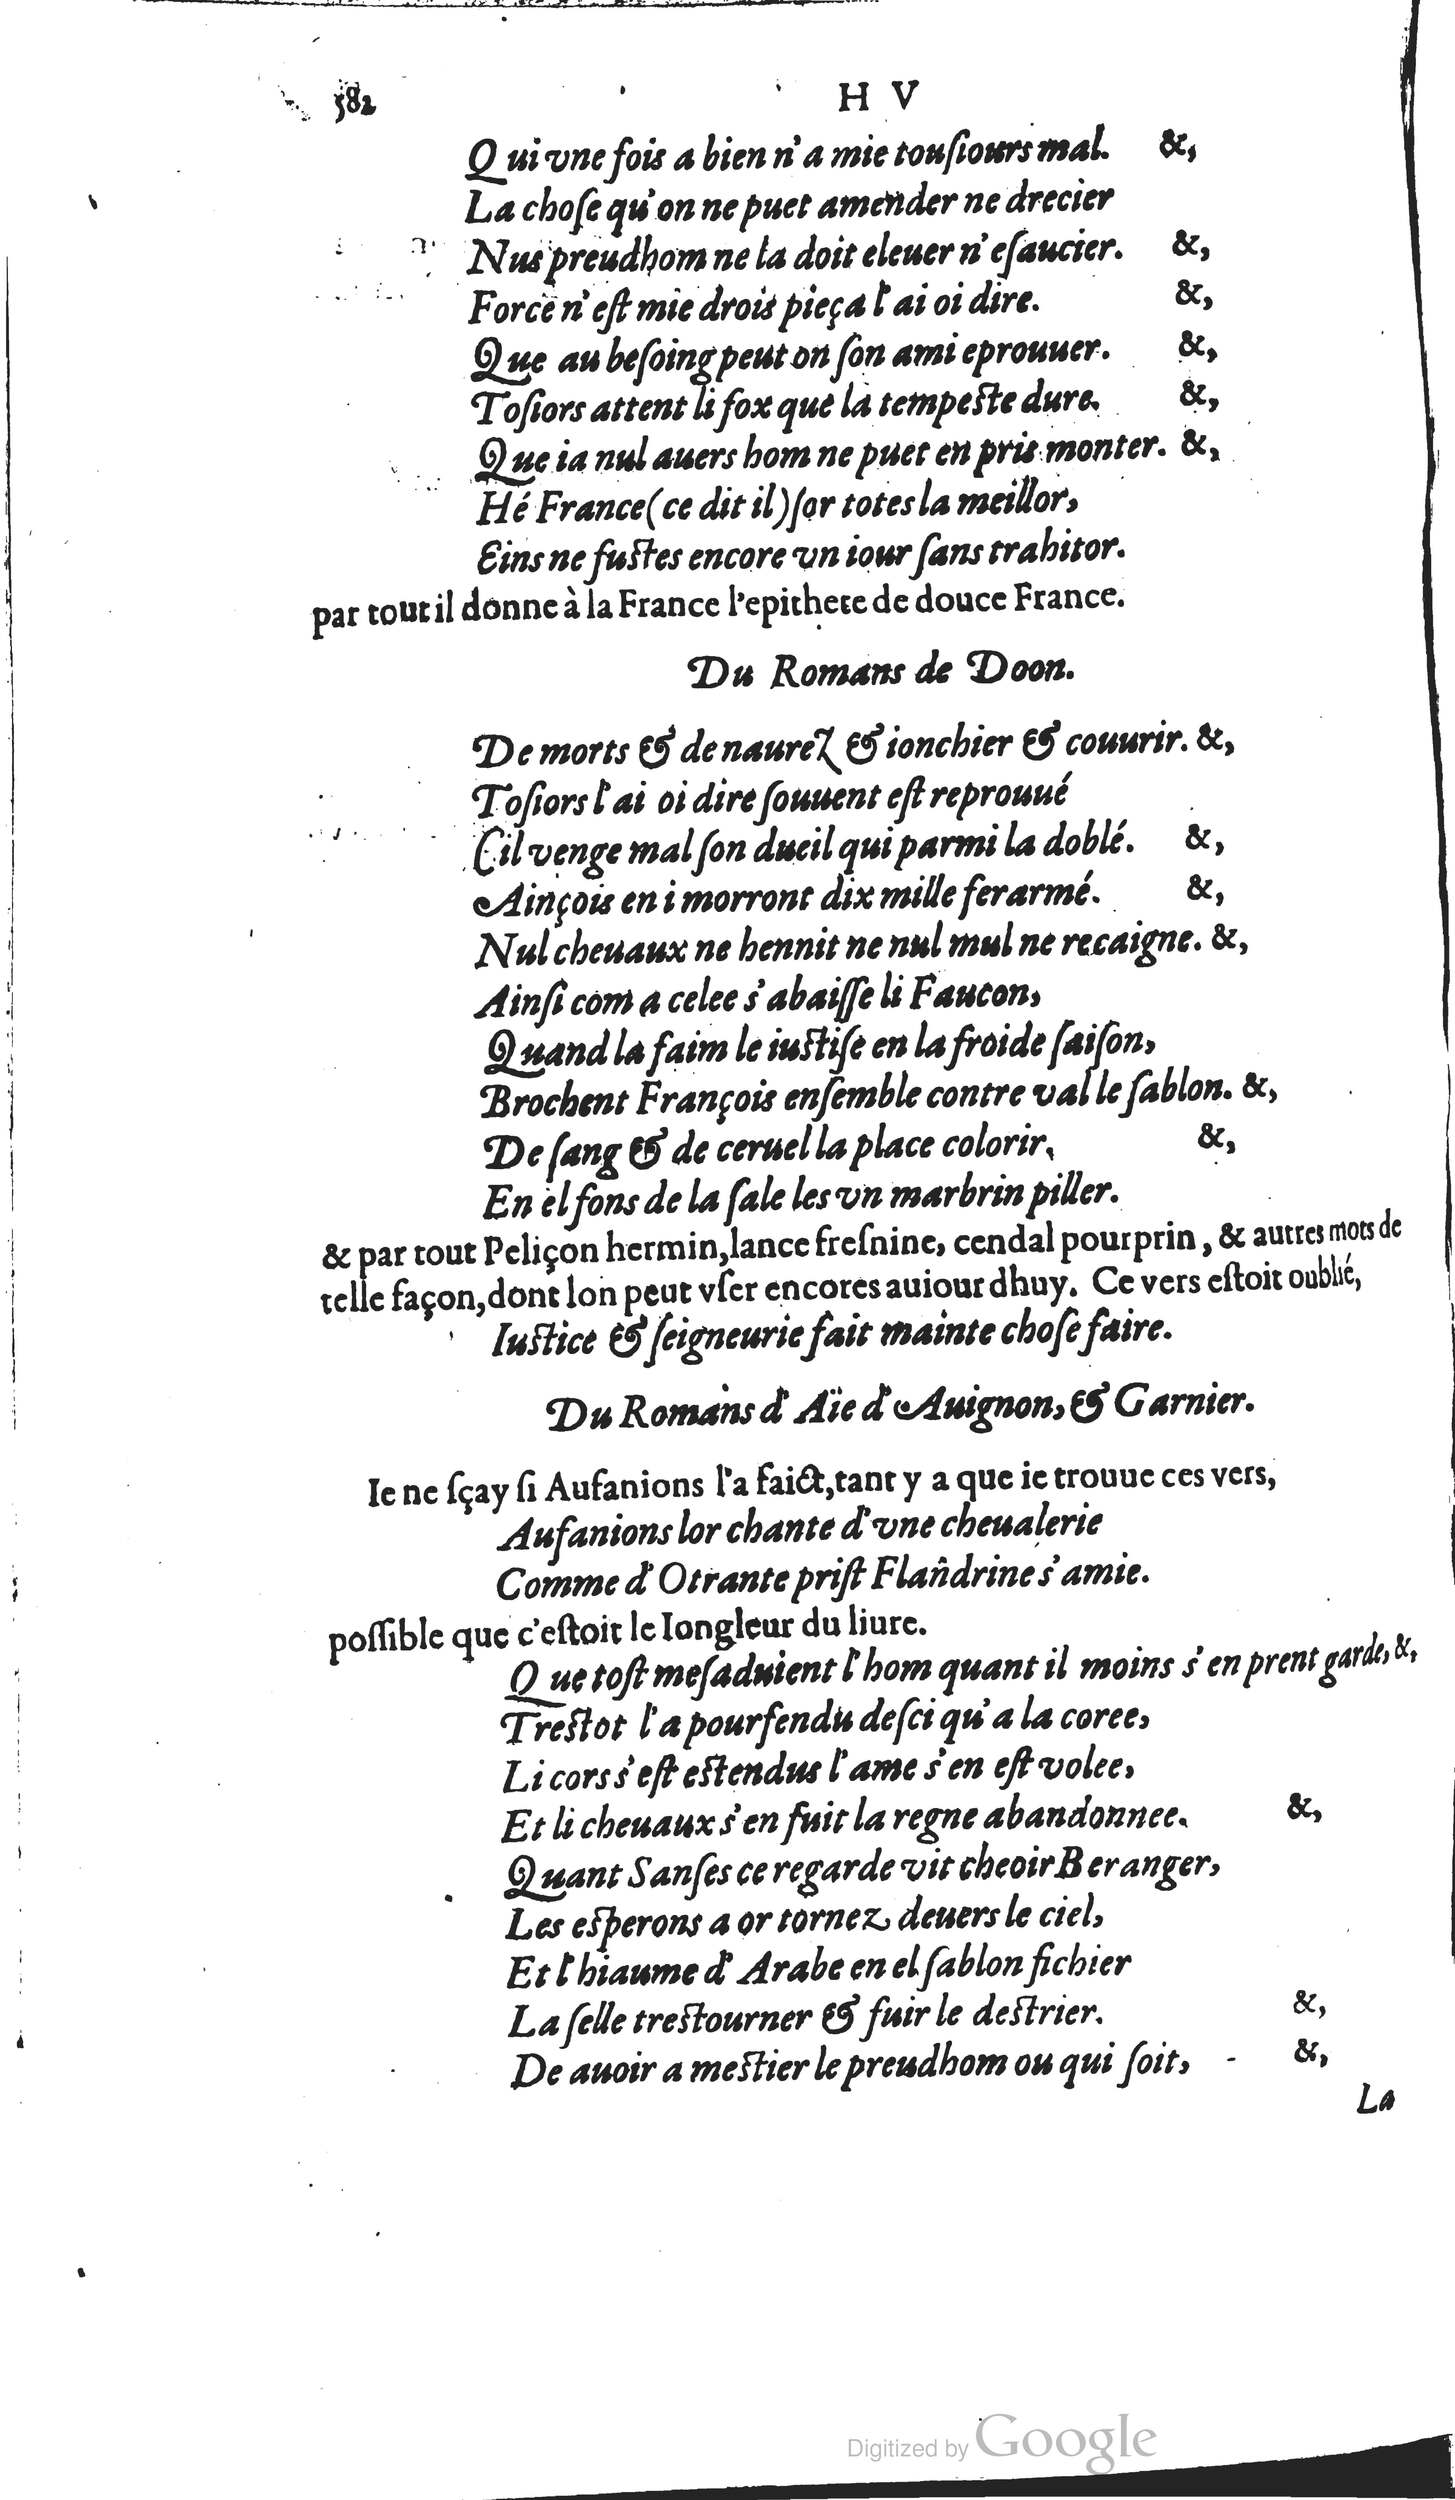 582 H V
Qui vne fois a bien n'a mie touſiours mal. &,
La choſe qu'on ne puet amender ne drecier
Nus preudhom ne la doit eleuer n'eſaucier. &,
Force n'eſt mie drois pieça l'ai oi dire. &,
Que au beſoing peut on ſon ami eprouuer. &,
Toſiors attent li fox que la tempeſte dure. &,
Que ia nul auers hom ne puet en pris monter. &,
Hé France (ce dit il) ſor totes la meillor,
Eins ne fuſtes encore vn iour ſans trahitor.
par tout il donne à la France l'epithete de douce France.
Du Romans de Doon.
De morts & de naurez & ionchier & couurir. &,
Toſiors l'ai oi dire ſouuent eſt reprouué
Cil venge mal ſon dueil qui parmi la doblé. &,
Ainçois en i morront dix mille ferarmé. &,
Nul cheuaux ne hennit ne nul mul ne recaigne. &,
Ainſi com a celee s'abaiſſe li Faucon,
Quand la faim le iuſtiſe en la froide ſaiſon,
Brochent François enſemble contre val le ſablon. &,
De ſang & de ceruel la place colorir, &,
En el fons de la ſale les vn marbrin piller.
& par tout Peliçon hermin, lance freſnine, cendal pourprin, & autres mots de
telle façon, dont lon peut vſer encores auiourdhuy. Ce vers eſtoit oublié,
Iuſtice & ſeigneurie fait mainte choſe faire.
Du Romans d'Aïe d'Auignon, & Garnier.
Ie ne ſçay ſi Aufanions l'a faict, tant y a que ie trouue ces vers,
Aufanions lor chante d'vne cheualerie
Comme d'Otrante priſt Flandrine s'amie.
poſſible que c'eſtoit le Iongleur du liure.
Que toſt meſaduient l'hom quant il moins s'en prent garde, &,
Treſtot l'a pourfendu deſci qu'a la coree,
Li cors s'eſt eſtendus l'ame s'en eſt volee,
Et li cheuaux s'en fuit la regne abandonnee. &,
Quant Sanſes ce regarde vit cheoir Beranger,
Les eſperons a or tornez deuers le ciel,
Et l'hiaume d'Arabe en el ſablon fichier
La ſelle treſtourner & fuir le deſtrier. &,
De auoir a meſtier le preudhom ou qui ſoit, - &,
La
Digitized by Google